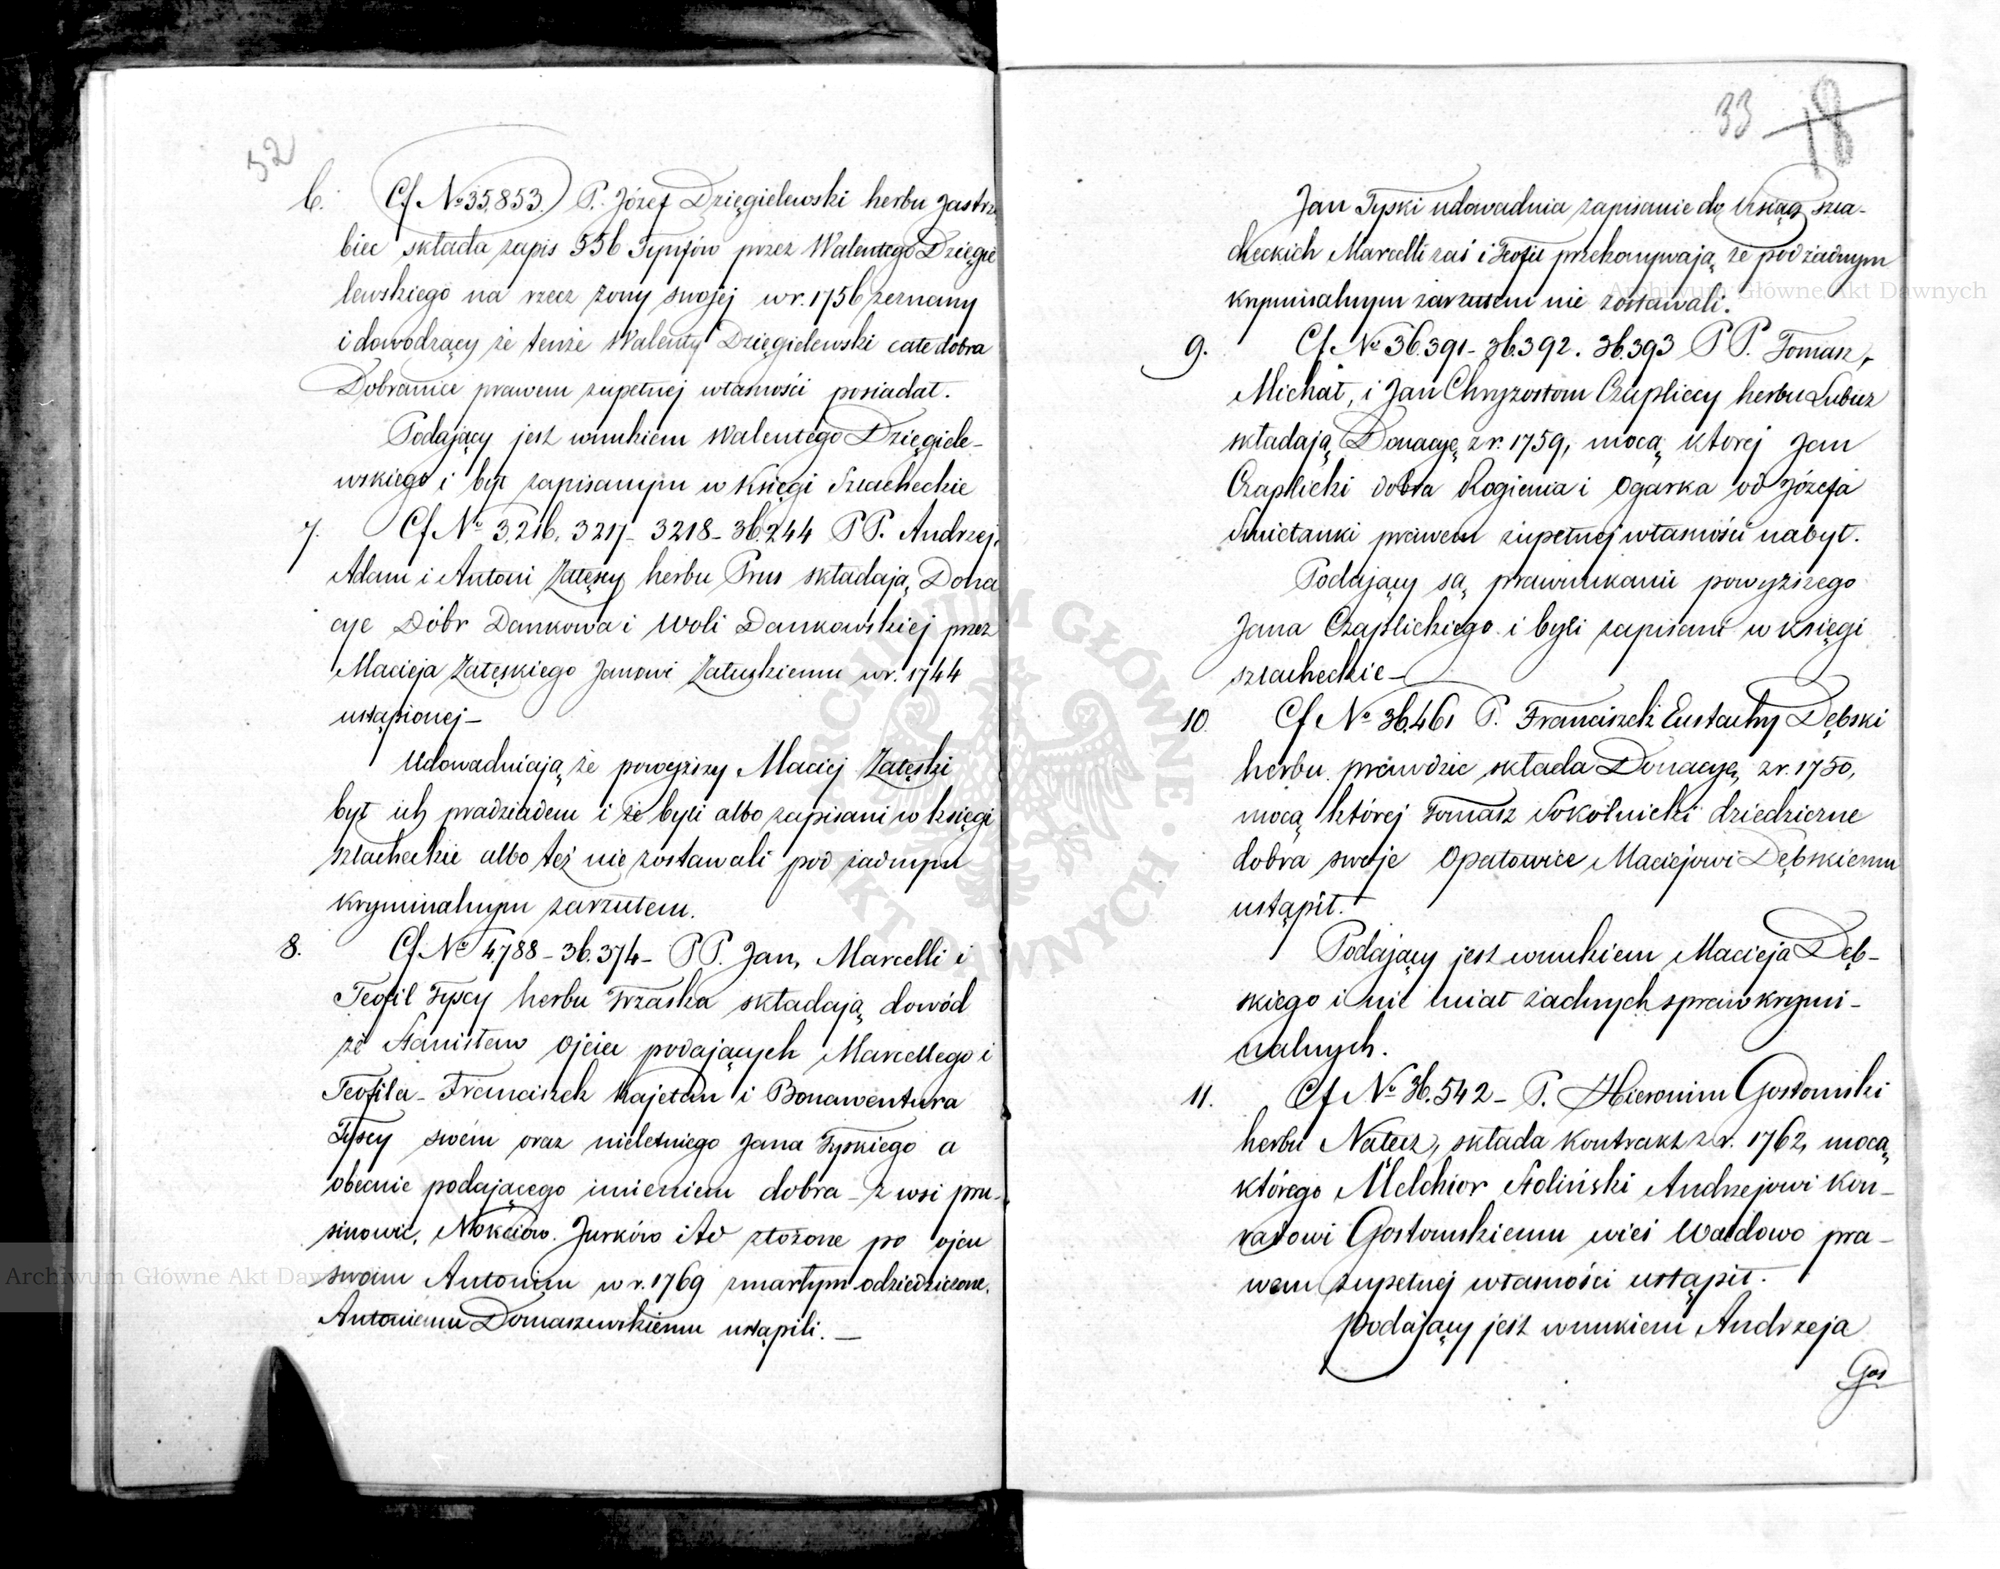 32
6. Cf No 35.853. P. Józef Dzięgielewski herbu Jastrzę
biec składa zapis 556 Tynfów przez Walentego Dzięgie
lewskiego na rzecz żony swojej w r. 1756 zeznany
i dowodzący że tenże Walenty Dzięgielewski całe dobra
Dobranice prawem zupełnej własności posiadał.
Podający jest wnukiem Walentego Dzięgiele-
wskiego i był zapisanym w Księgi Szlacheckie
7. Cf No 3.216. 3217- 3218- 36.244 PP. Andrzej,
Adam i Antoni Załęscy herbu Prus składają Dona
cje Dóbr Dankowa i Woli Dankowskiej przez
Macieja Załęskiego Janowi Załuskiemu w r. 1744
ustąpionej-
Udowadniają że powyższy Maciej Załęski
był ich pradziadem i że byli albo zapisani w księgi
szlacheckie albo też nie zostawali pod żadnym
kryminalnym zarzutem.
8. Cf No 4.788- 36.374- PP. Jan, Marcelli i
Teofil Tyscy herbu Trzaska składają dowód
że Stanisław ojciec podających Marcellego i
Teofila- Franciszek Kajetan i Bonawentura
Tyscy swem oraz nieletniego Jana Tyskiego a
obecnie podającego imieniem dobra- z wsi pru-
sinowic, Jurków i złożone po ojcu
swoim Antonim w r. 1769 zmarłym odziedziczone.
Antoniemu Domaszewskiemu ustąpili.-
33 18
Jan Tyski udowadnia zapisanie do ksiąg szla-
checkich Marcelli zaś i Teofil przekonywają że pod żadnym
kryminalnym zarzutem nie zostawali.
9. Cf No 36.391- 36.392. 36.393 PP. Tomasz,
Michał, i Jan Chryzostom Czapliccy herbu Lubicz
składają Donacyę z r. 1759, mocą ktorej Jan
Czaplicki dobra Rogienia i Ogarka od Józefa
Smietanki prawem zupełnej własności nabył.
Podający są prawnukami powyższego
Jana Czaplickiego i byli zapisani w księgi
szlacheckie-
10. Cf No 36.461 P. Franciszek Eustachy Dębski
herbu prawdzic składa Donacyę z r. 1750,
mocą której Tomasz Sokolnicki dziedziczne
dobra swoje Opatowice Maciejowi Dębskiemu
ustąpił.
Podający jest wnukiem Macieja Dęb-
skiego i nie miał żadnych spraw krymi-
nalnych.
11. Cf No 36.542- P. Hieronim Gostomski
herbu Nałęcz, składa Kontrakt z r. 1762, mocą
którego Melchior Stoliński Andrzejowi Kon-
radowi Gostomskiemu wieś Wałdowo pra-
wem zupełnej własności ustąpił.
Podający jest wnukiem Andrzeja
Gos
Archiwum Główne Akt Dawnych
Archiwum Główne Akt Dawnych
ARCHIWUM GŁÓWNE AKT DAWNYCH